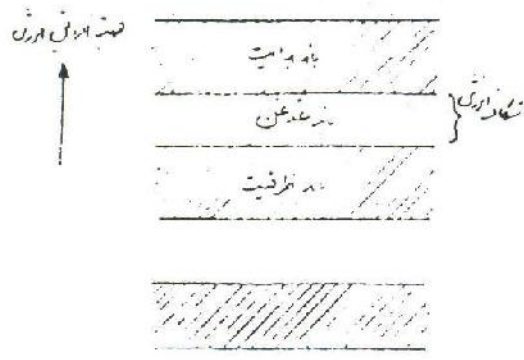 جهت افزایش انرژی
باند هدایت
باند ممنوعه
شکاف انرژی
باند ظرفیت